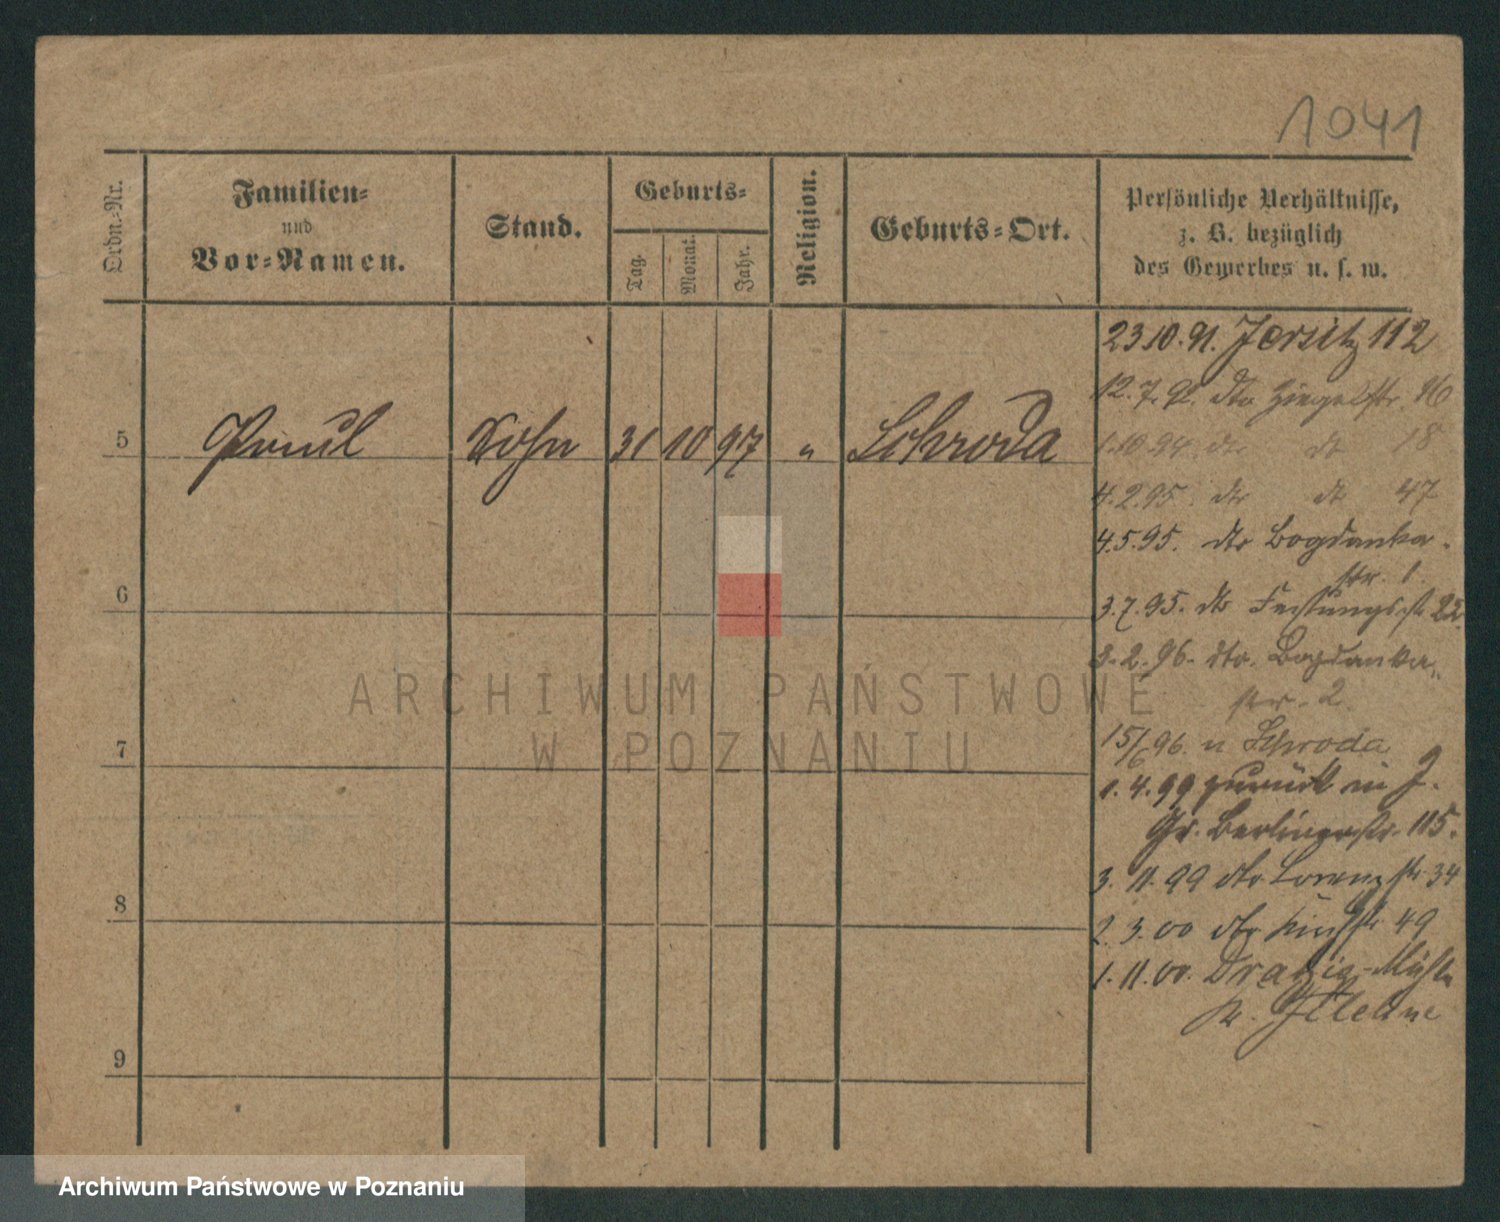 1041
Ordn.-Nr.
Familien-
und
Vor-Namen.
Stand.
Geburts-
Tag.
Monat.
Jahr.
Religion.
Geburts-Ort.
Persönliche Verhältnisse,
z. B. bezüglich
des Gewerbes u. s. w.
5 Paul Sohn 31 10 97 " Schroda
6
7
8
9
23.10.91. Jersitz 112
12.7.92. dto Ziegelstr. 16
1.10.94. dto dt 18
4.2.95. dto dt 47
4.5.95. dto Bogdanka-
str. 1.
3.7.95. dto Festungsstr. 22
3.2.96. dto. Bogdanka-
str. 2.
15/6 96. n Schroda
1.4.99 zurück in J.
Gr. Berlinerstr. 115.
3.11.99 dto Lorenzstr 34
2.3.00 dto 49
1.11.00. Dratzig-Mühle
Kr. Filehne
ARCHIWUM PAŃSTWOWE
W POZNANIU
Archiwum Państwowe w Poznaniu